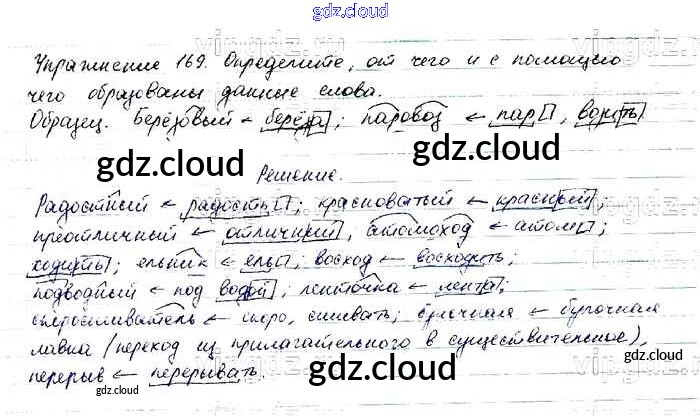 gdz.cloud
Упражнение 169. Определите, от чего и с помощью
чего образованы данные слова.
Образец. Берёзовый ← берёза; паровоз ← пар, возить.
gdz.cloud gdz.cloud
Решение.
Радостный ← радость; красноватый ← красный;
преотличный ← отличный, атомоход ← атом;
ходить; ельник ← ель; восход ← восходить;
gdz.cloud
подводный ← под водой; ленточка ← лента;
← скоро, сшивать; булочная ← булочная
лавка (переход из прилагательного в существительное),
gdz.cloud
перерыв ← перерывать.
gdz.cloud gdz.cloud